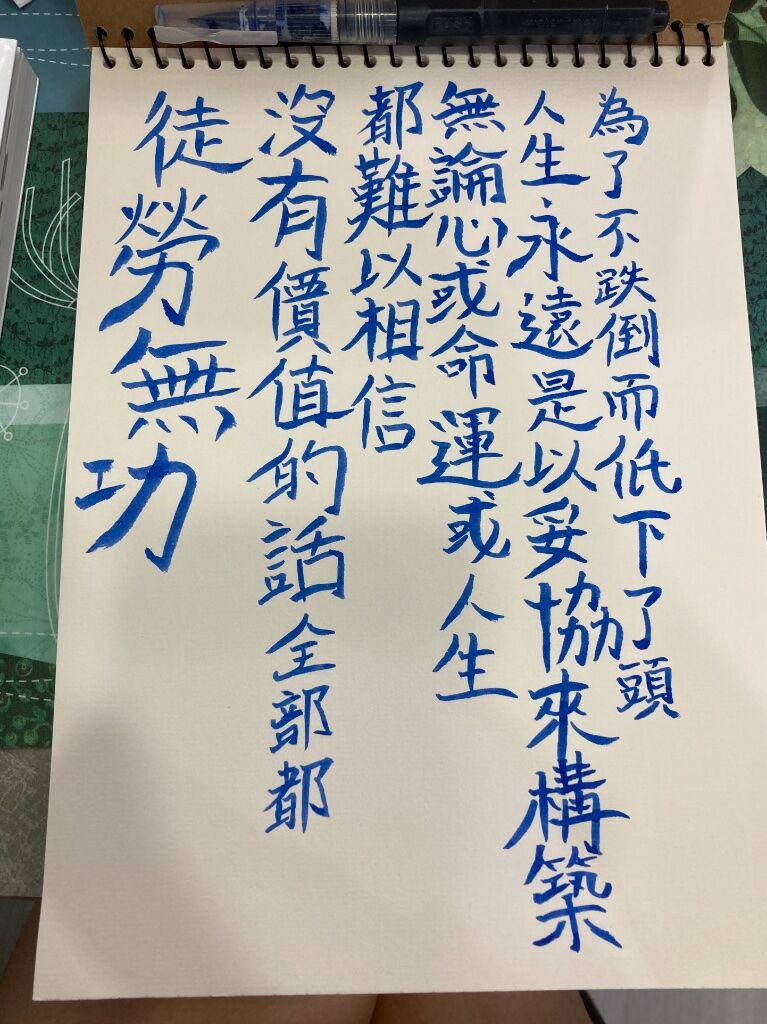 為了不跌倒而低下了頭
人生永遠是以妥協來構築
無論心或命運或人生
都難以相信
沒有價值的話全部都
徒勞無功